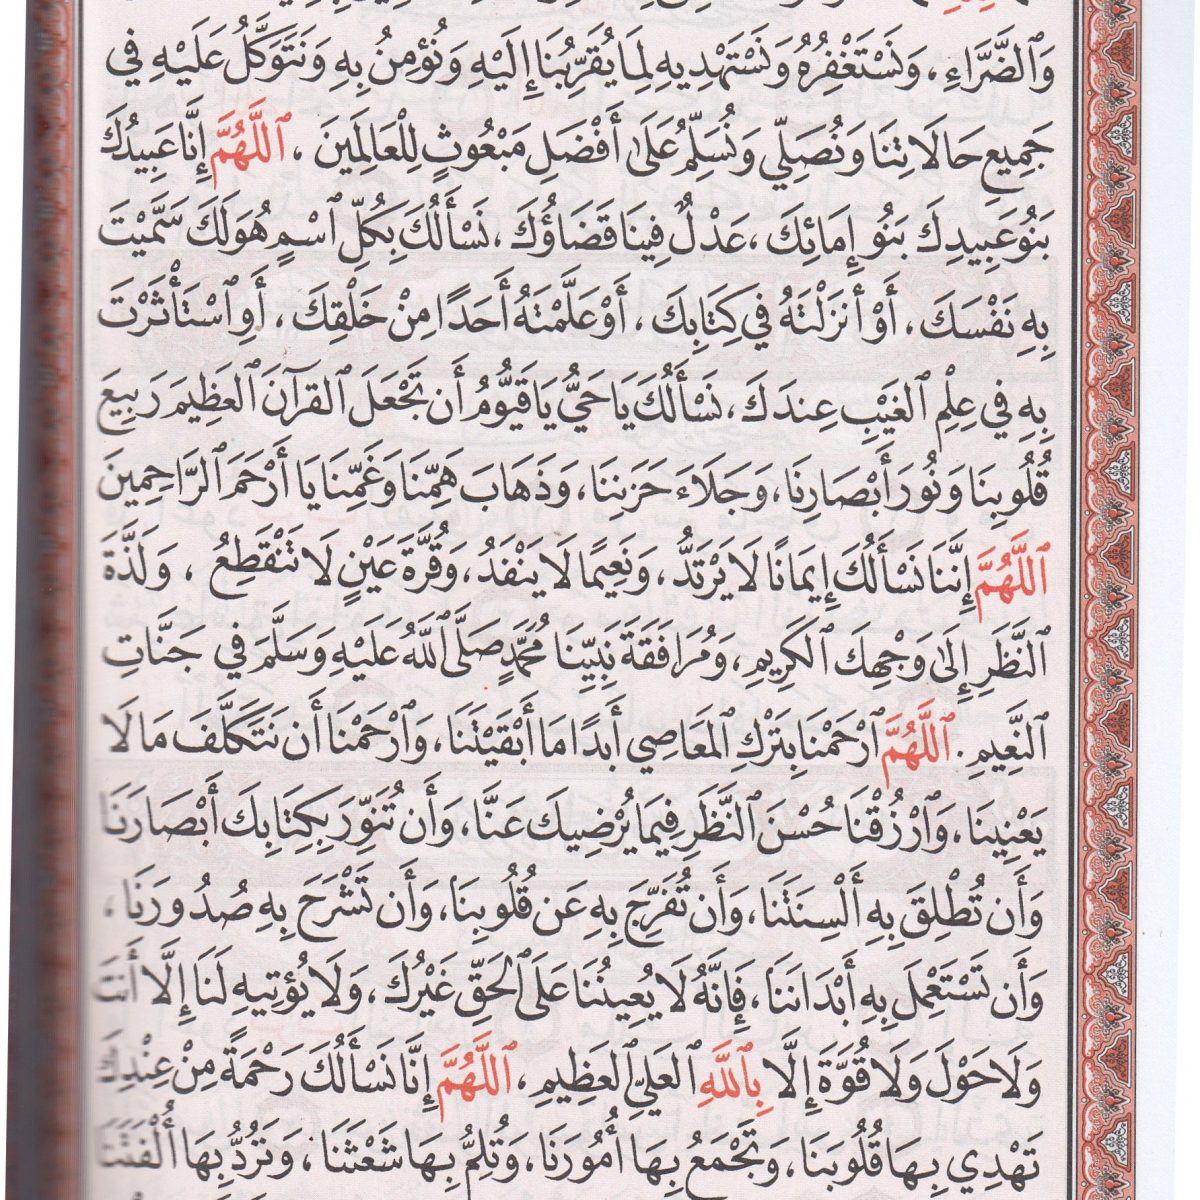 وَالضَّرَّاءِ، وَنَسْتَغْفِرُهُ وَنَسْتَهْدِيهِ لِمَا يُقَرِّبُنَا إِلَيْهِ وَنُؤْمِنُ بِهِ وَنَتَوَكَّلُ عَلَيْهِ فِي
جَمِيعِ حَالَاتِنَا وَنُصَلِّي وَنُسَلِّمُ عَلَى أَفْضَلِ مَبْعُوثٍ لِلْعَالَمِينَ، ٱللَّهُمَّ إِنَّا عَبِيدُكَ
بَنُو عَبِيدِكَ بَنُو إِمَائِكَ، عَدْلٌ فِينَا قَضَاؤُكَ، نَسْأَلُكَ بِكُلِّ ٱسْمٍ هُوَ لَكَ سَمَّيْتَ
بِهِ نَفْسَكَ، أَوْ أَنزَلْتَهُ فِي كِتَابِكَ، أَوْ عَلَّمْتَهُ أَحَدًا مِنْ خَلْقِكَ، أَوِ ٱسْتَأْثَرْتَ
بِهِ فِي عِلْمِ ٱلغَيْبِ عِندَكَ، نَسْأَلُكَ يَا حَيُّ يَا قَيُّومُ أَن تَجْعَلَ ٱلقُرآنَ ٱلعَظِيمَ رَبِيعَ
قُلُوبِنَا وَنُورَ أَبْصَارِنَا، وَجَلَاءَ حَزَنِنَا، وَذَهَابَ هَمِّنَا وَغَمِّنَا يَا أَرْحَمَ ٱلرَّاحِمِينَ
ٱللَّهُمَّ إِنَّنَا نَسْأَلُكَ إِيمَانًا لَا يَرْتَدُّ، وَنَعِيمًا لَا يَنْفَدُ، وَقُرَّةَ عَيْنٍ لَا تَنْقَطِعُ، وَلَذَّةَ
ٱلنَّظَرِ إِلَى وَجْهِكَ ٱلكَرِيمِ، وَمُرَافَقَةَ نَبِيِّنَا مُحَمَّدٍ صَلَّى ٱللَّهُ عَلَيْهِ وَسَلَّمَ فِي جَنَّاتِ
ٱلنَّعِيمِ. ٱللَّهُمَّ ٱرْحَمْنَا بِتَرْكِ ٱلمَعَاصِي أَبَدًا مَا أَبْقَيْتَنَا، وَٱرْحَمْنَا أَن نَتَكَلَّفَ مَا لَا
يَعْنِينَا، وَٱرْزُقْنَا حُسْنَ ٱلنَّظَرِ فِيمَا يُرْضِيكَ عَنَّا، وَأَن تُنَوِّرَ بِكِتَابِكَ أَبْصَارَنَا
وَأَن تُطْلِقَ بِهِ أَلْسِنَتَنَا، وَأَن تُفَرِّجَ بِهِ عَن قُلُوبِنَا، وَأَن تَشْرَحَ بِهِ صُدُورَنَا،
وَأَن تَسْتَعْمِلَ بِهِ أَبْدَانَنَا، فَإِنَّهُ لَا يُعِينُنَا عَلَى ٱلحَقِّ غَيْرُكَ، وَلَا يُؤتِيهِ لَنَا إِلَّا أَنتَ
وَلَا حَوْلَ وَلَا قُوَّةَ إِلَّا بِٱللَّهِ ٱلعَلِيِّ ٱلعَظِيمِ، ٱللَّهُمَّ إِنَّا نَسْأَلُكَ رَحْمَةً مِنْ عِنْدِكَ
تَهْدِي بِهَا قُلُوبَنَا، وَتَجْمَعُ بِهَا أُمُورَنَا، وَتُلِمُّ بِهَا شَعْثَنَا، وَتَرُدُّ بِهَا أُلْفَتَنَا